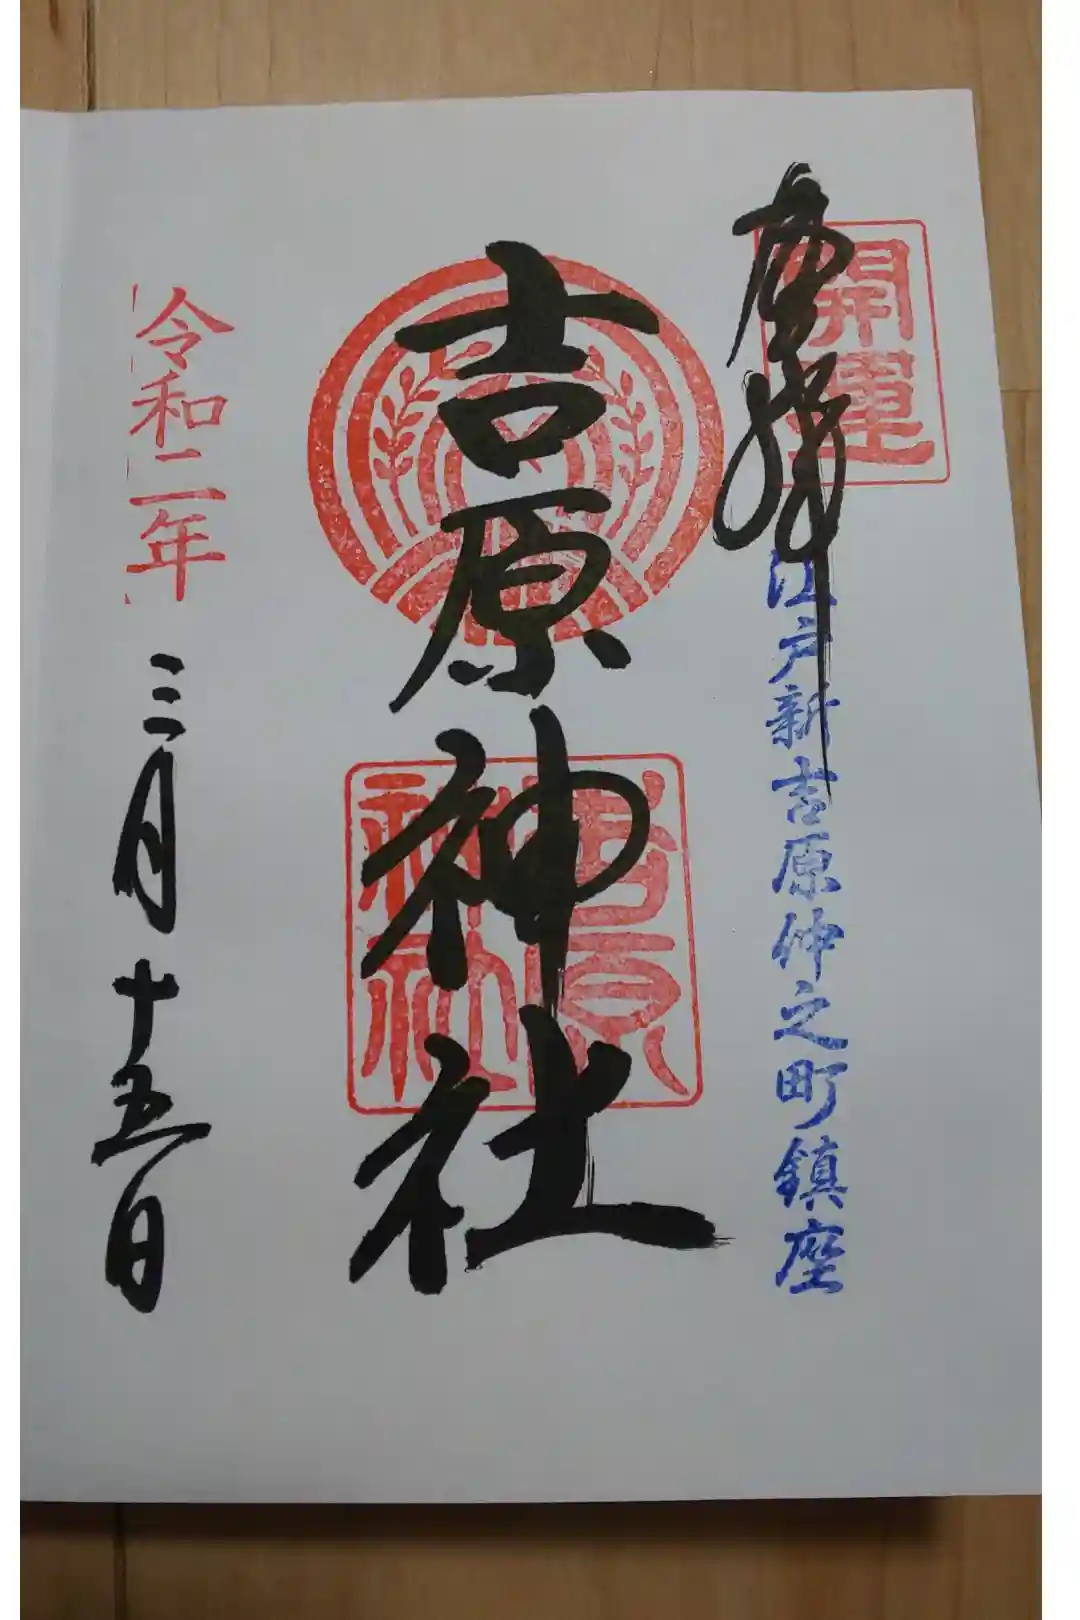 奉拝
開運
江戸新吉原仲之町鎮座
吉原神社
吉原
神社
令和二年
三月十五日